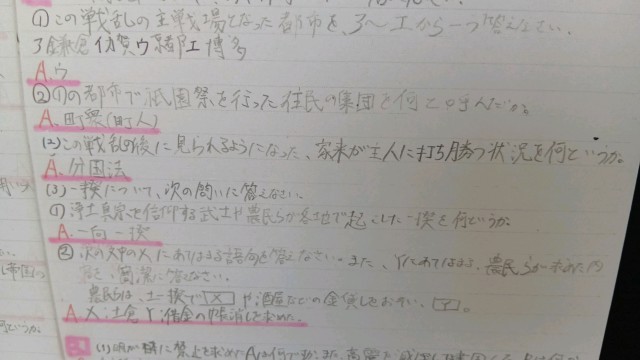 ①この戦乱の主戦場となった都市を、ア〜エから一つ答えなさい。
ア鎌倉 イ加賀 ウ京都 エ博多
A.ウ
②①の都市で祇園祭を行った住民の集団を何と呼んだか。
A.町衆(町人)
(2)この戦乱の後に見られるようになった、家来が主人に打ち勝つ状況を何というか。
A.分国法
(3)一揆について、次の問いに答えなさい。
①浄土真宗を信仰する武士や農民らが各地で起こした一揆を何というか。
A.一向一揆
②次の文中のXにあてはまる語句を答えなさい。また、Yにあてはまる、農民らが求めた内
容を、簡潔に答えなさい。
農民らは、土一揆で X や酒屋などの金貸しをおそい、 Y 。
A.X:土倉 Y:借金の帳消しを求めた。